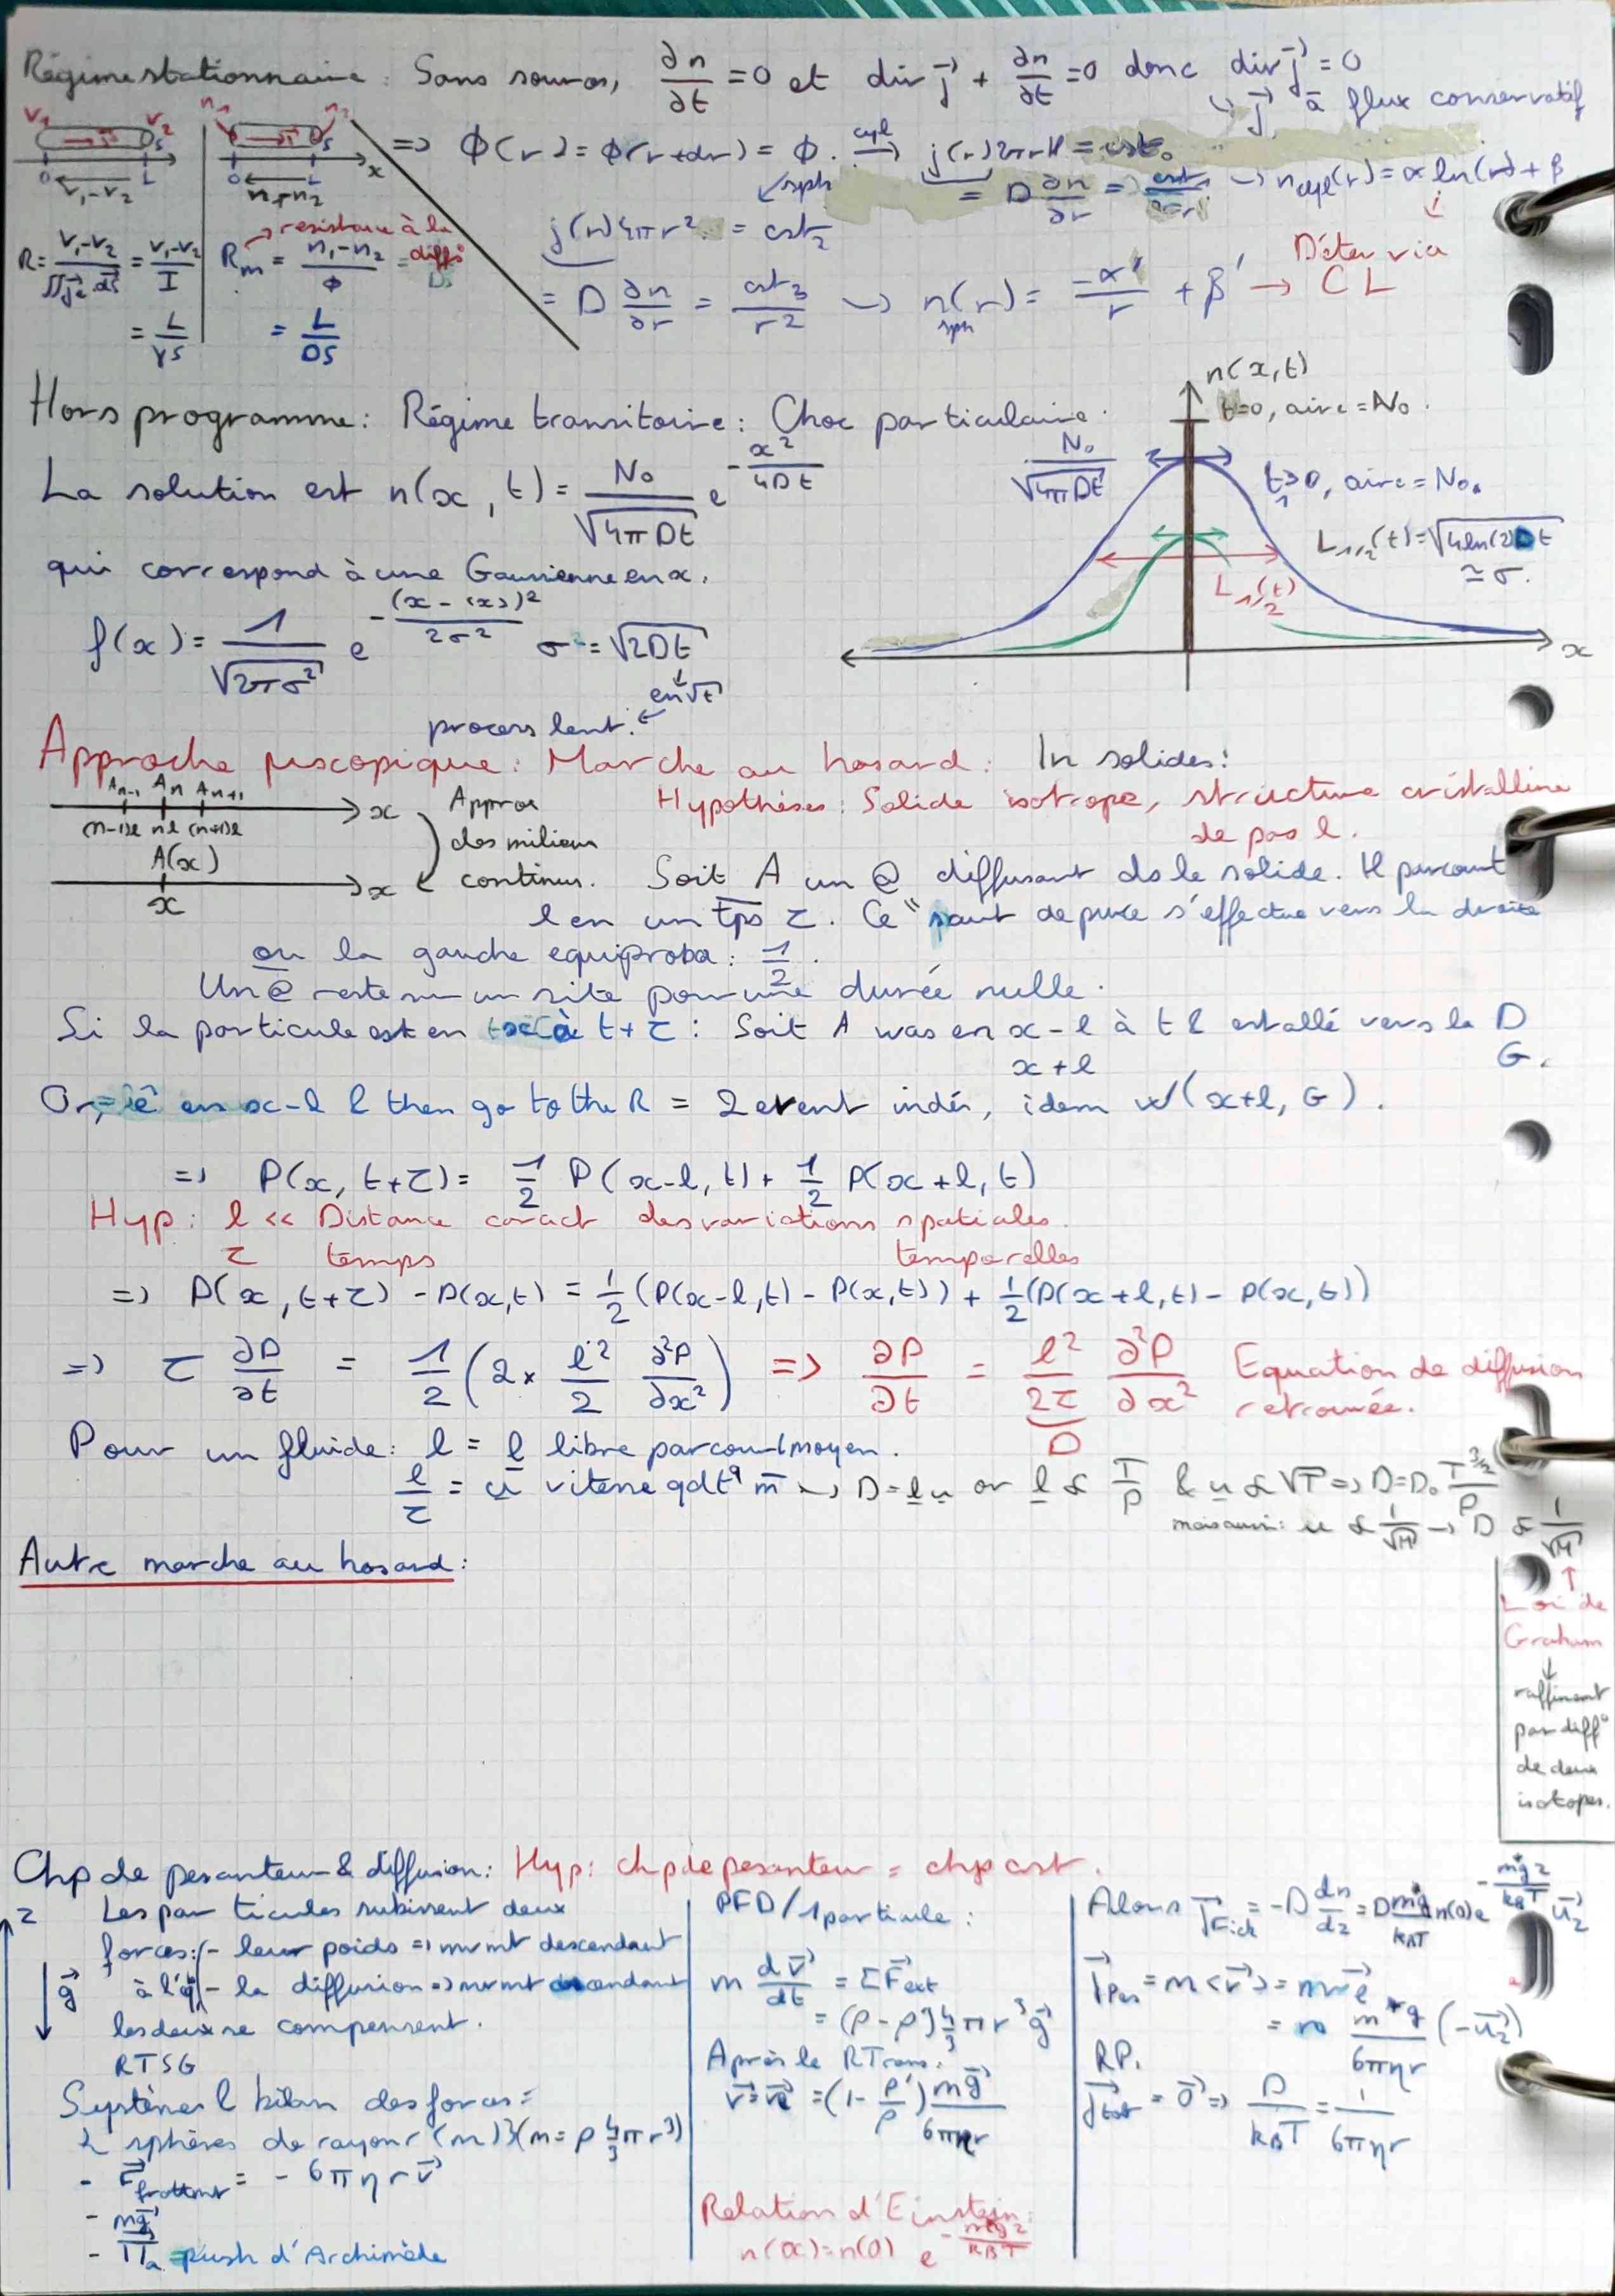 Régime stationnaire : Sans sources, ∂n/∂t = 0 et div j⃗ + ∂n/∂t = 0 donc div j⃗ = 0
↪ j⃗ à flux conservatif
V1 V2 S
0 L
V1-V2
n1 n2 S
0 L x
n1-n2
=> ϕ(r) = ϕ(r+dr) = ϕ. cyl→ j(r) 2πrH = cst.
= D ∂n/∂r = → ncyl(r) = α ln(r) + β
↙ sph
j(r) 4πr² = cst2
= D ∂n/∂r = cst3/r² → n(r) sph = -α'/r + β' → CL
Déter via
R = (V1-V2)/∬j⃗e dS⃗ = (V1-V2)/I
= L/γS
resistance à la diff°
Rm = (n1-n2)/ϕ
= L/DS
Hors programme : Régime transitoire : Choc particulaire.
La solution est n(x, t) = N0/√(4πDt) e^(-x²/4Dt)
qui correspond à une Gaussienne en x.
f(x) = 1/√(2πσ²) e^(-(x-<x>)²/2σ²) σ = √(2Dt)
en √t
process lent. ←
n(x,t)
t=0, aire = N0.
N0/√(4πDt)
t1>0, aire = N0.
L1/2(t) = √(4ln(2)Dt)
≃ σ.
L1/2(t)
x
Approche µscopique : Marche au hasard : In solides :
An-1 An An+1 x
(n-1)l nl (n+1)l
Approx des milieux continus.
A(x)
x x
Hypothèses : Solide isotrope, structure cristalline
de pas l.
Soit A un @ diffusant ds le solide. Il parcourt
l en un tps τ. Ce "saut de puce s'effectue vers la droite
ou la gauche equiproba : 1/2.
Un @ reste sur un site pour une durée nulle.
Si la particule est en x à t+τ : Soit A was en x-l à t & est allé vers la D
x+l G.
Or, ê en x-l & then go to the R = 2 event indé, idem w/ (x+l, G).
=> P(x, t+τ) = 1/2 P(x-l, t) + 1/2 P(x+l, t)
Hyp : l << Distance caract des variations spatiales.
τ temps temporelles
=> P(x, t+τ) - P(x,t) = 1/2 (P(x-l,t) - P(x,t)) + 1/2 (P(x+l,t) - P(x,t))
=> τ ∂P/∂t = 1/2 (2 × l²/2 ∂²P/∂x²) => ∂P/∂t = l²/2τ ∂²P/∂x² Equation de diffusion
D retrouvée.
Pour un fluide : l = l libre parcours moyen.
l/τ = u vitesse qdt^q m̄ → D = l u or l α T/P & u α √T => D = D0 T^(3/2)/P
mais aussi : u α 1/√M → D α 1/√M
↑
Loi de
Graham
↓
raffinent
par diff°
de deux
isotopes.
Autre marche au hasard :
Chp de pesanteur & diffusion : Hyp : chp de pesanteur = chp cst.
z
g⃗
Les particules subissent deux
forces : - leur poids => mvmt descendant
à l'éq - la diffusion => mvmt ascendant
les deux se compensent.
RTSG
Système & bilan des forces =
{ sphères de rayon r (m) } (m = ρ 4/3 πr³)
- F⃗frottmt = - 6πηr v⃗
- mg⃗
- Π⃗a = push d'Archimède
PFD/1 particule :
m dv⃗/dt = ΣF⃗ext
= (ρ - ρ') 4/3 πr³ g⃗
Après le RTrans :
v⃗ = v⃗l = (1 - ρ'/ρ) mg⃗/6πηr
Relation d'Einstein :
n(x) = n(0) e^(-m*gz/kBT)
Alors j⃗Fick = -D dn/dz = D m*g/kBT n(0) e^(-m*gz/kBT) u⃗z
j⃗Pes = n<v⃗> = n v⃗l
= n m*g/6πηr (-u⃗z)
RP.
j⃗tot = 0⃗ => D/kBT = 1/6πηr